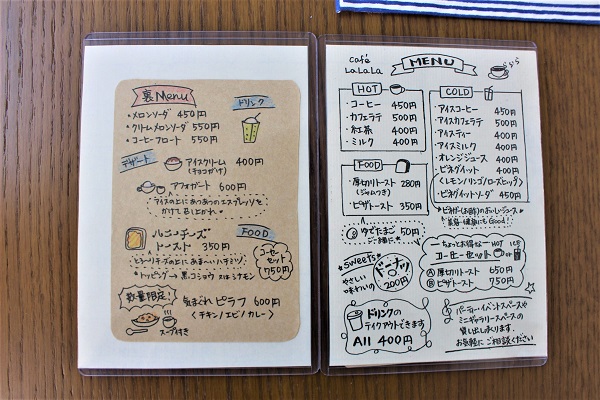 裏Menu
ドリンク
・メロンソーダ 450円
・クリームメロンソーダ 550円
・コーヒーフロート 550円
デザート
アイスクリーム 400円
(チョコがけ)
アフォガート 600円
アイスの上にあつあつのエスプレッソを
かけてめしあがれ
ハニーチーズ
トースト 350円
FOOD
とろ〜りチーズの上にあま〜いハチミツ
トッピング→黒コショウ又はシナモン
コーヒー
セット
750円
数量限定!
気まぐれピラフ 600円
(チキン/エビ/カレー)
スープ付き
Café
LaLaLa
MENU
HOT
・コーヒー 450円
・カフェラテ 500円
・紅茶 400円
・ミルク 400円
COLD
・アイスコーヒー 450円
・アイスカフェラテ 500円
・アイスティー 400円
・アイスミルク 400円
・オレンジジュース 400円
・ビネグイット 400円
(レモン/リンゴ/ローズヒップ)
・ビネグイットソーダ 450円
ビネガー(お酢)のおいしいジュース
美容・健康にもGood!
FOOD
・厚切りトースト 280円
(ジャムつき)
・ピザトースト 350円
ゆでたまご 50円
ご一緒に
sweets
やさしい
味わいの
ドーナツ
200円
ちょっとお得な HOT ICE
コーヒーセット
Ⓐ 厚切りトースト 650円
Ⓑ ピザトースト 750円
ドリンクの
テイクアウトできます
All 400円
パーティー・イベントスペースや
ミニギャラリースペースの
貸し出し承ります。
お気軽にご相談ください